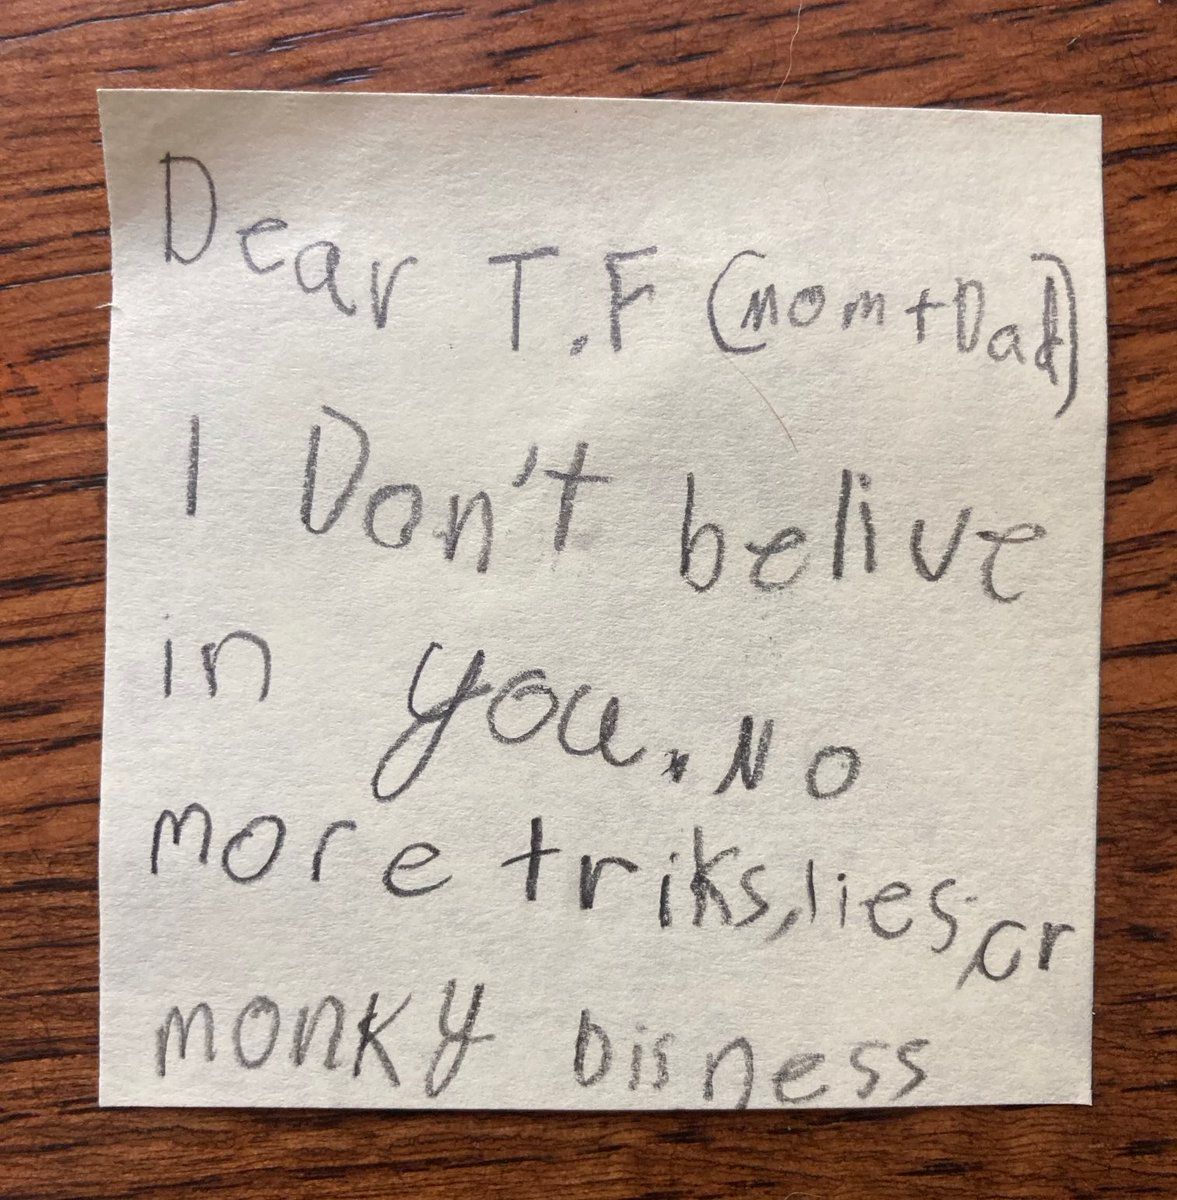 Dear T.F (mom+Dad)
I Don't belive
in you. No
more triks, lies, or
monky bisness